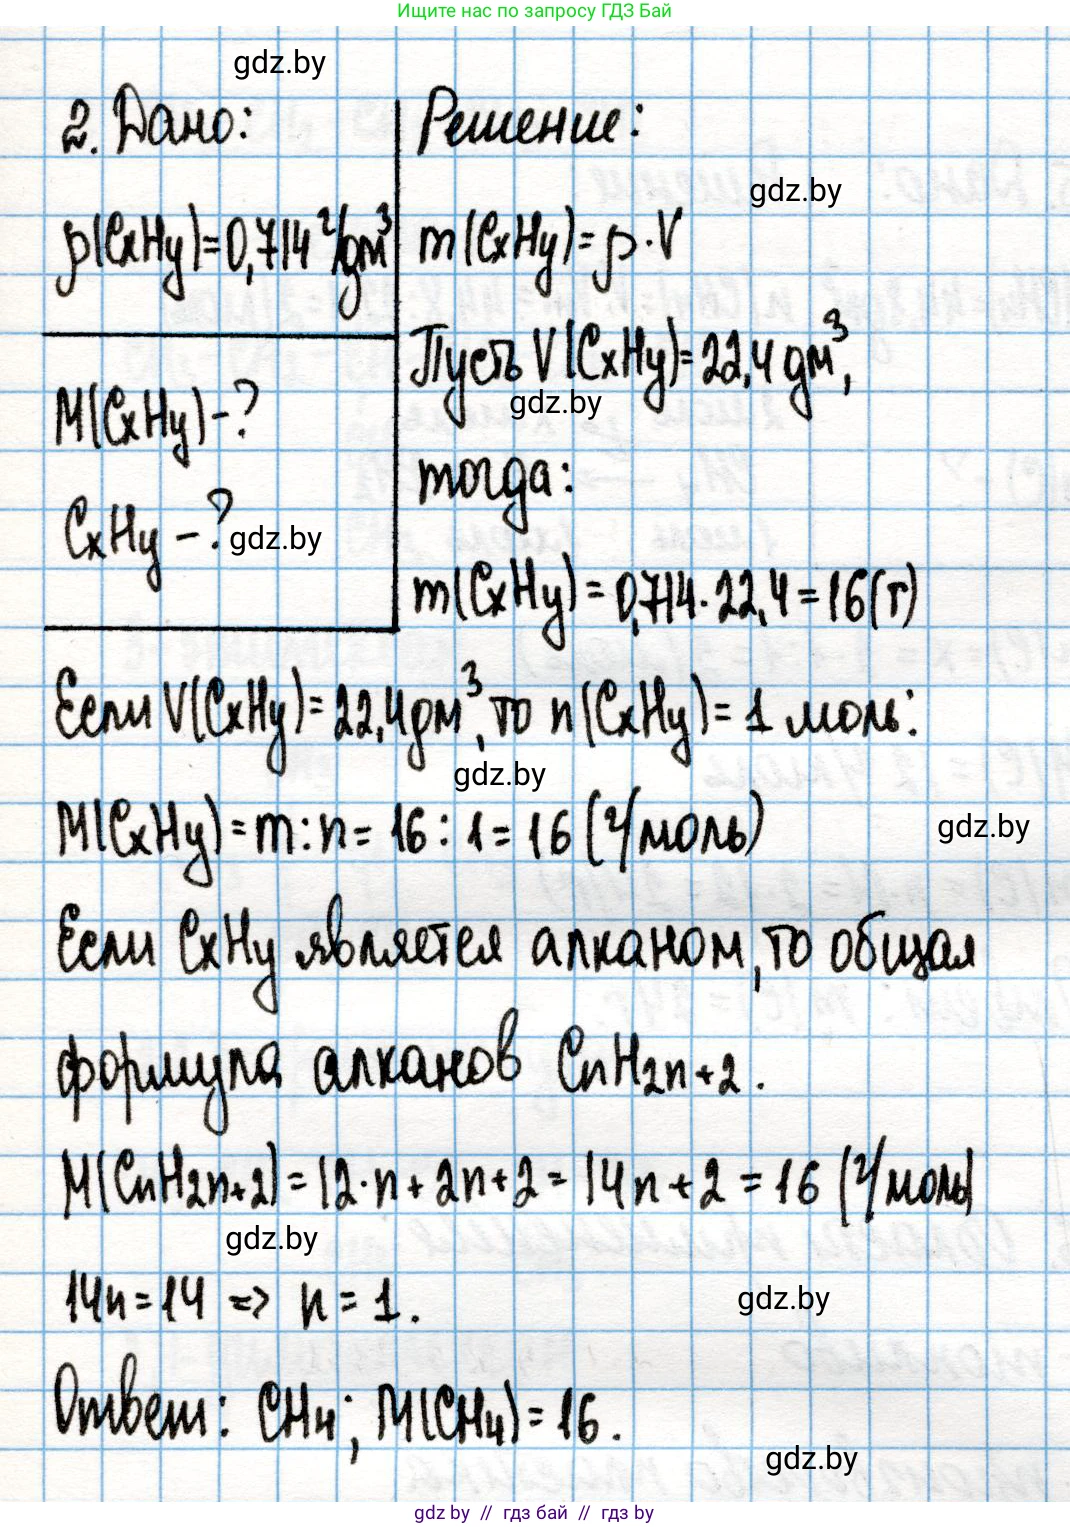 Ищите нас по запросу ГДЗ Бай
gdz.by
2. Дано:
Решение:
gdz.by
ρ(CxHy)=0,714 г/дм³
m(CxHy)=ρ·V
Пусть V(CxHy)=22,4 дм³,
gdz.by
M(CxHy)-?
тогда:
CxHy-?
gdz.by
m(CxHy)=0,714·22,4=16(г)
Если V(CxHy)=22,4дм³, то n(CxHy)=1 моль:
gdz.by
M(CxHy)=m:n=16:1=16 (г/моль)
gdz.by
Если CxHy является алканом, то общая
формула алканов CnH2n+2.
M(CnH2n+2)=12·n+2n+2=14n+2=16 (г/моль)
gdz.by
14n=14 => n=1.
gdz.by
Ответ: CH4; M(CH4)=16.
gdz.by
gdz by // гдз бай // gdz by